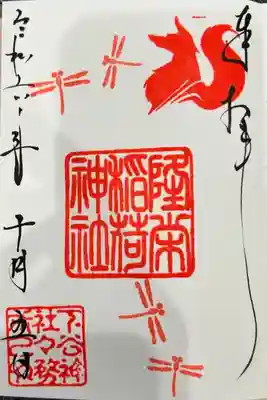 奉拝
隆栄
稲荷
神社
令和六年 十月 五日
下谷神
社々務
所之印